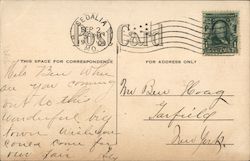 SEDALIA
SEP 2
MO.
Post Card
THIS SPACE FOR CORRESPONDENCE
FOR ADDRESS ONLY
Hello Ben When
are you coming
out to this
wonderful big
town wish you
could come for
our fair
Mr Ben Hoag
Fairfield
New York